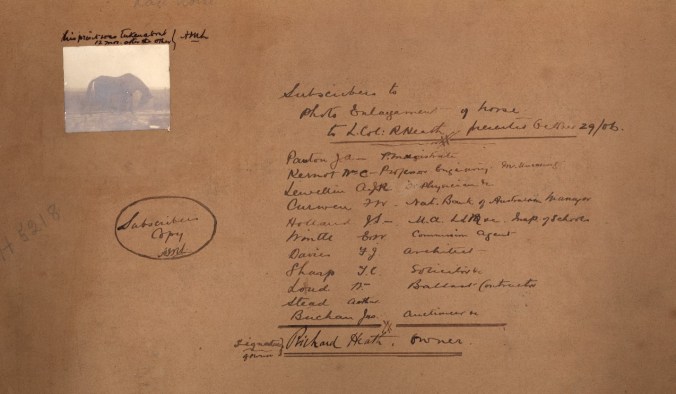 this print was taken about
12 mos. after the other
Subscribers to
Photo Enlargement of horse
to L. Col: R. Heath presented 29/06.
Panton J A P. Magistrate
Kernot W C - Professor Engineering
Lewellin A J R Physician &c
Curwen Nat. Bank of Australasia Manager
Holland J S - M.A. Insp of Schools
Wintle Commission Agent
Davies F J Architect
Sharp T. C. Solicitor &c
Loud Wm Ballast-Contractor
Stead Arthur
Buchan Jas. Auctioneer &c
Richard Heath. Owner.
Subscribers
Copy
H 82.8